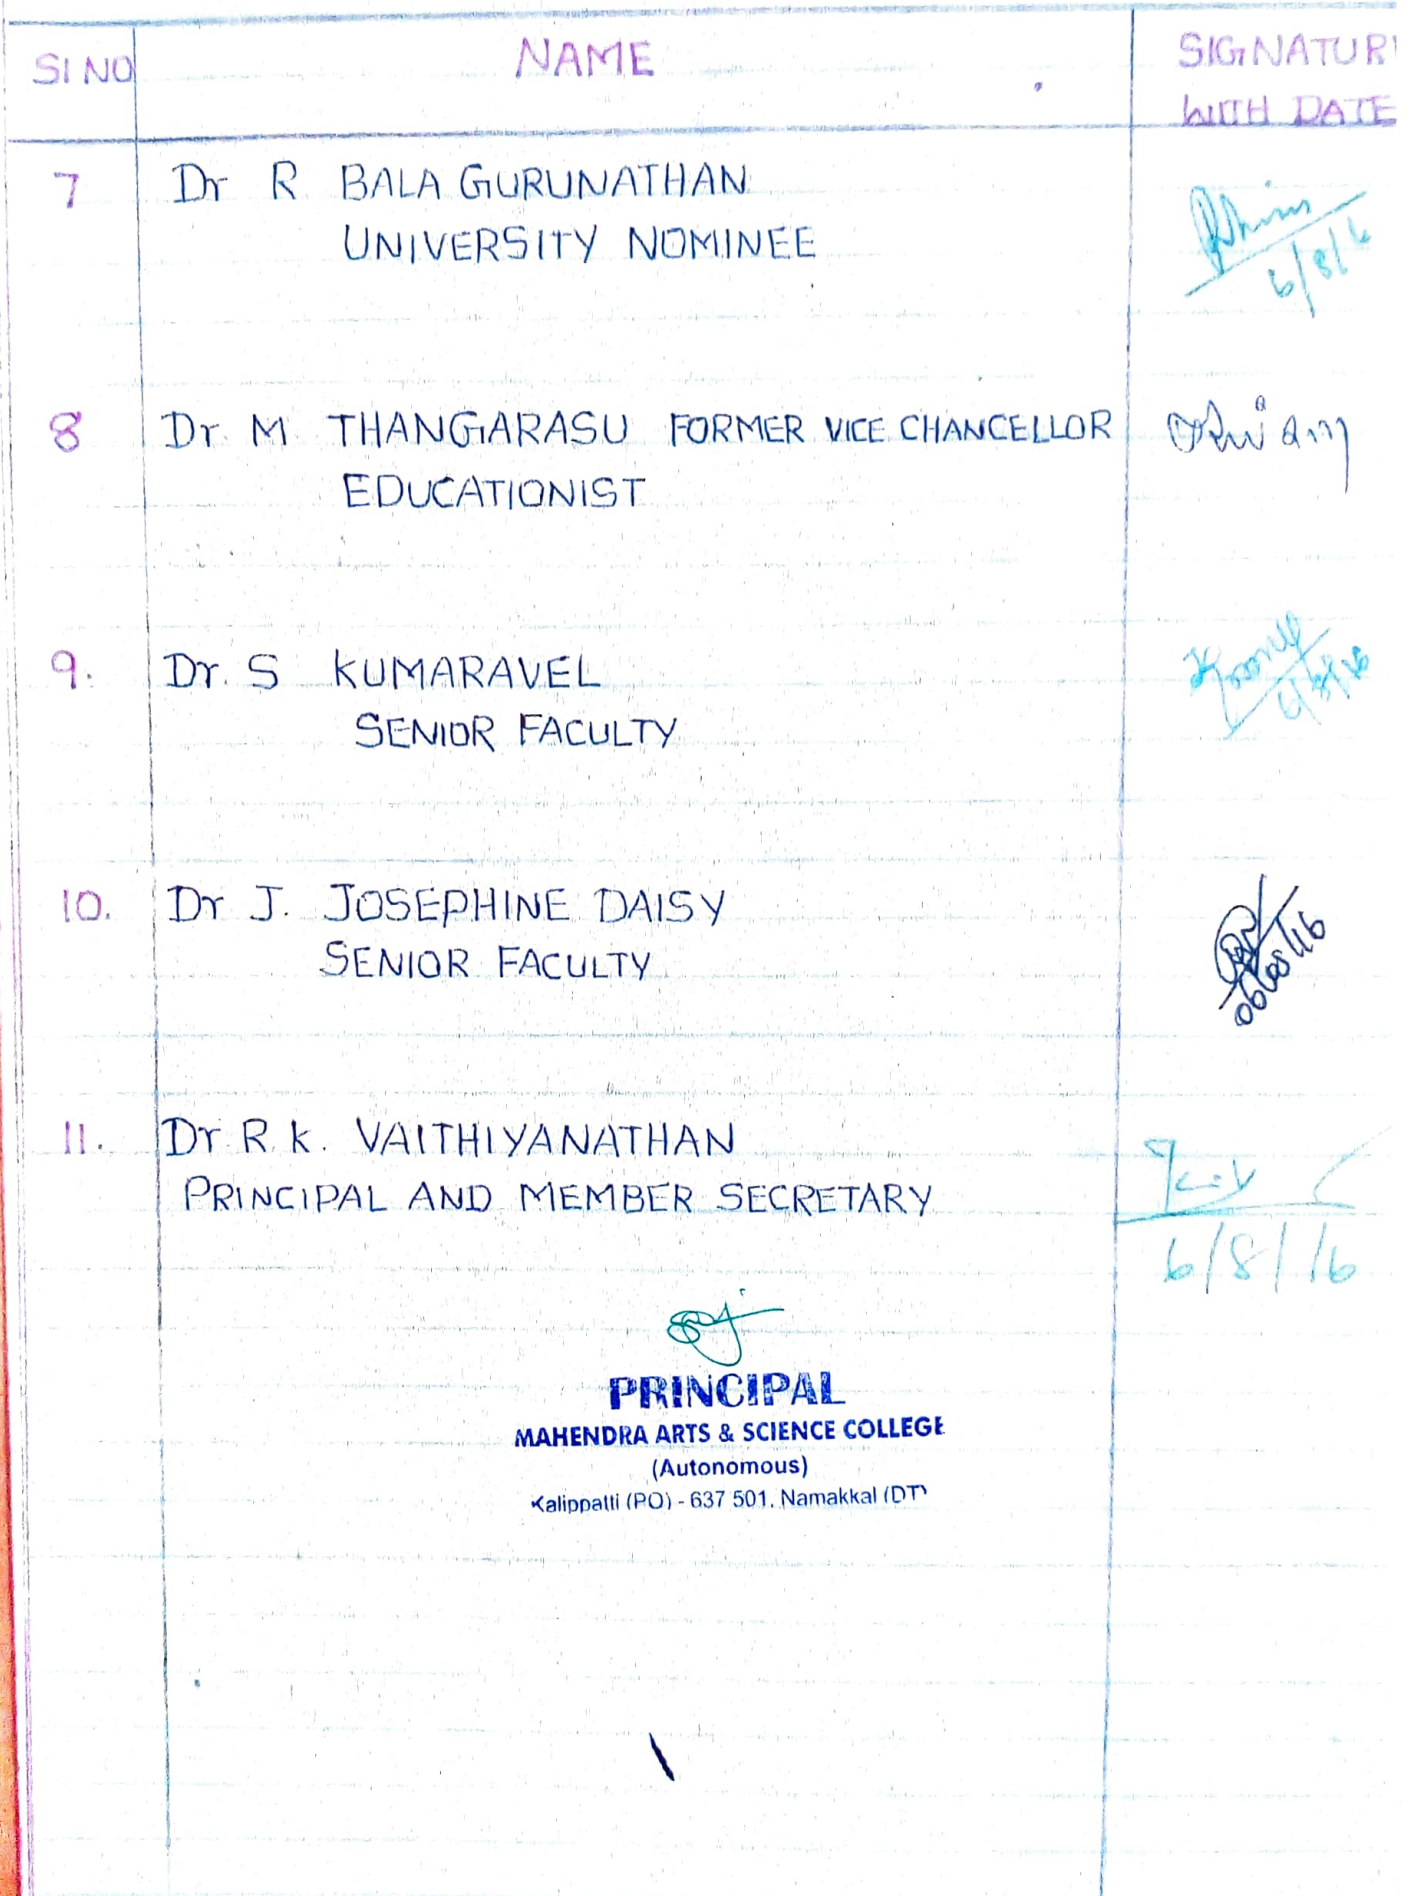 SI NO NAME SIGNATUR
WITH DATE
7 Dr R BALA GURUNATHAN
UNIVERSITY NOMINEE
6/8/16
8 Dr. M THANGARASU FORMER VICE CHANCELLOR
EDUCATIONIST
9. Dr. S KUMARAVEL
SENIOR FACULTY
6/8/16
10. Dr J. JOSEPHINE DAISY
SENIOR FACULTY
06/08/16
11. Dr R. K. VAITHIYANATHAN
PRINCIPAL AND MEMBER SECRETARY
6/8/16
PRINCIPAL
MAHENDRA ARTS & SCIENCE COLLEGE
(Autonomous)
Kalippatti (PO) - 637 501. Namakkal (DT)